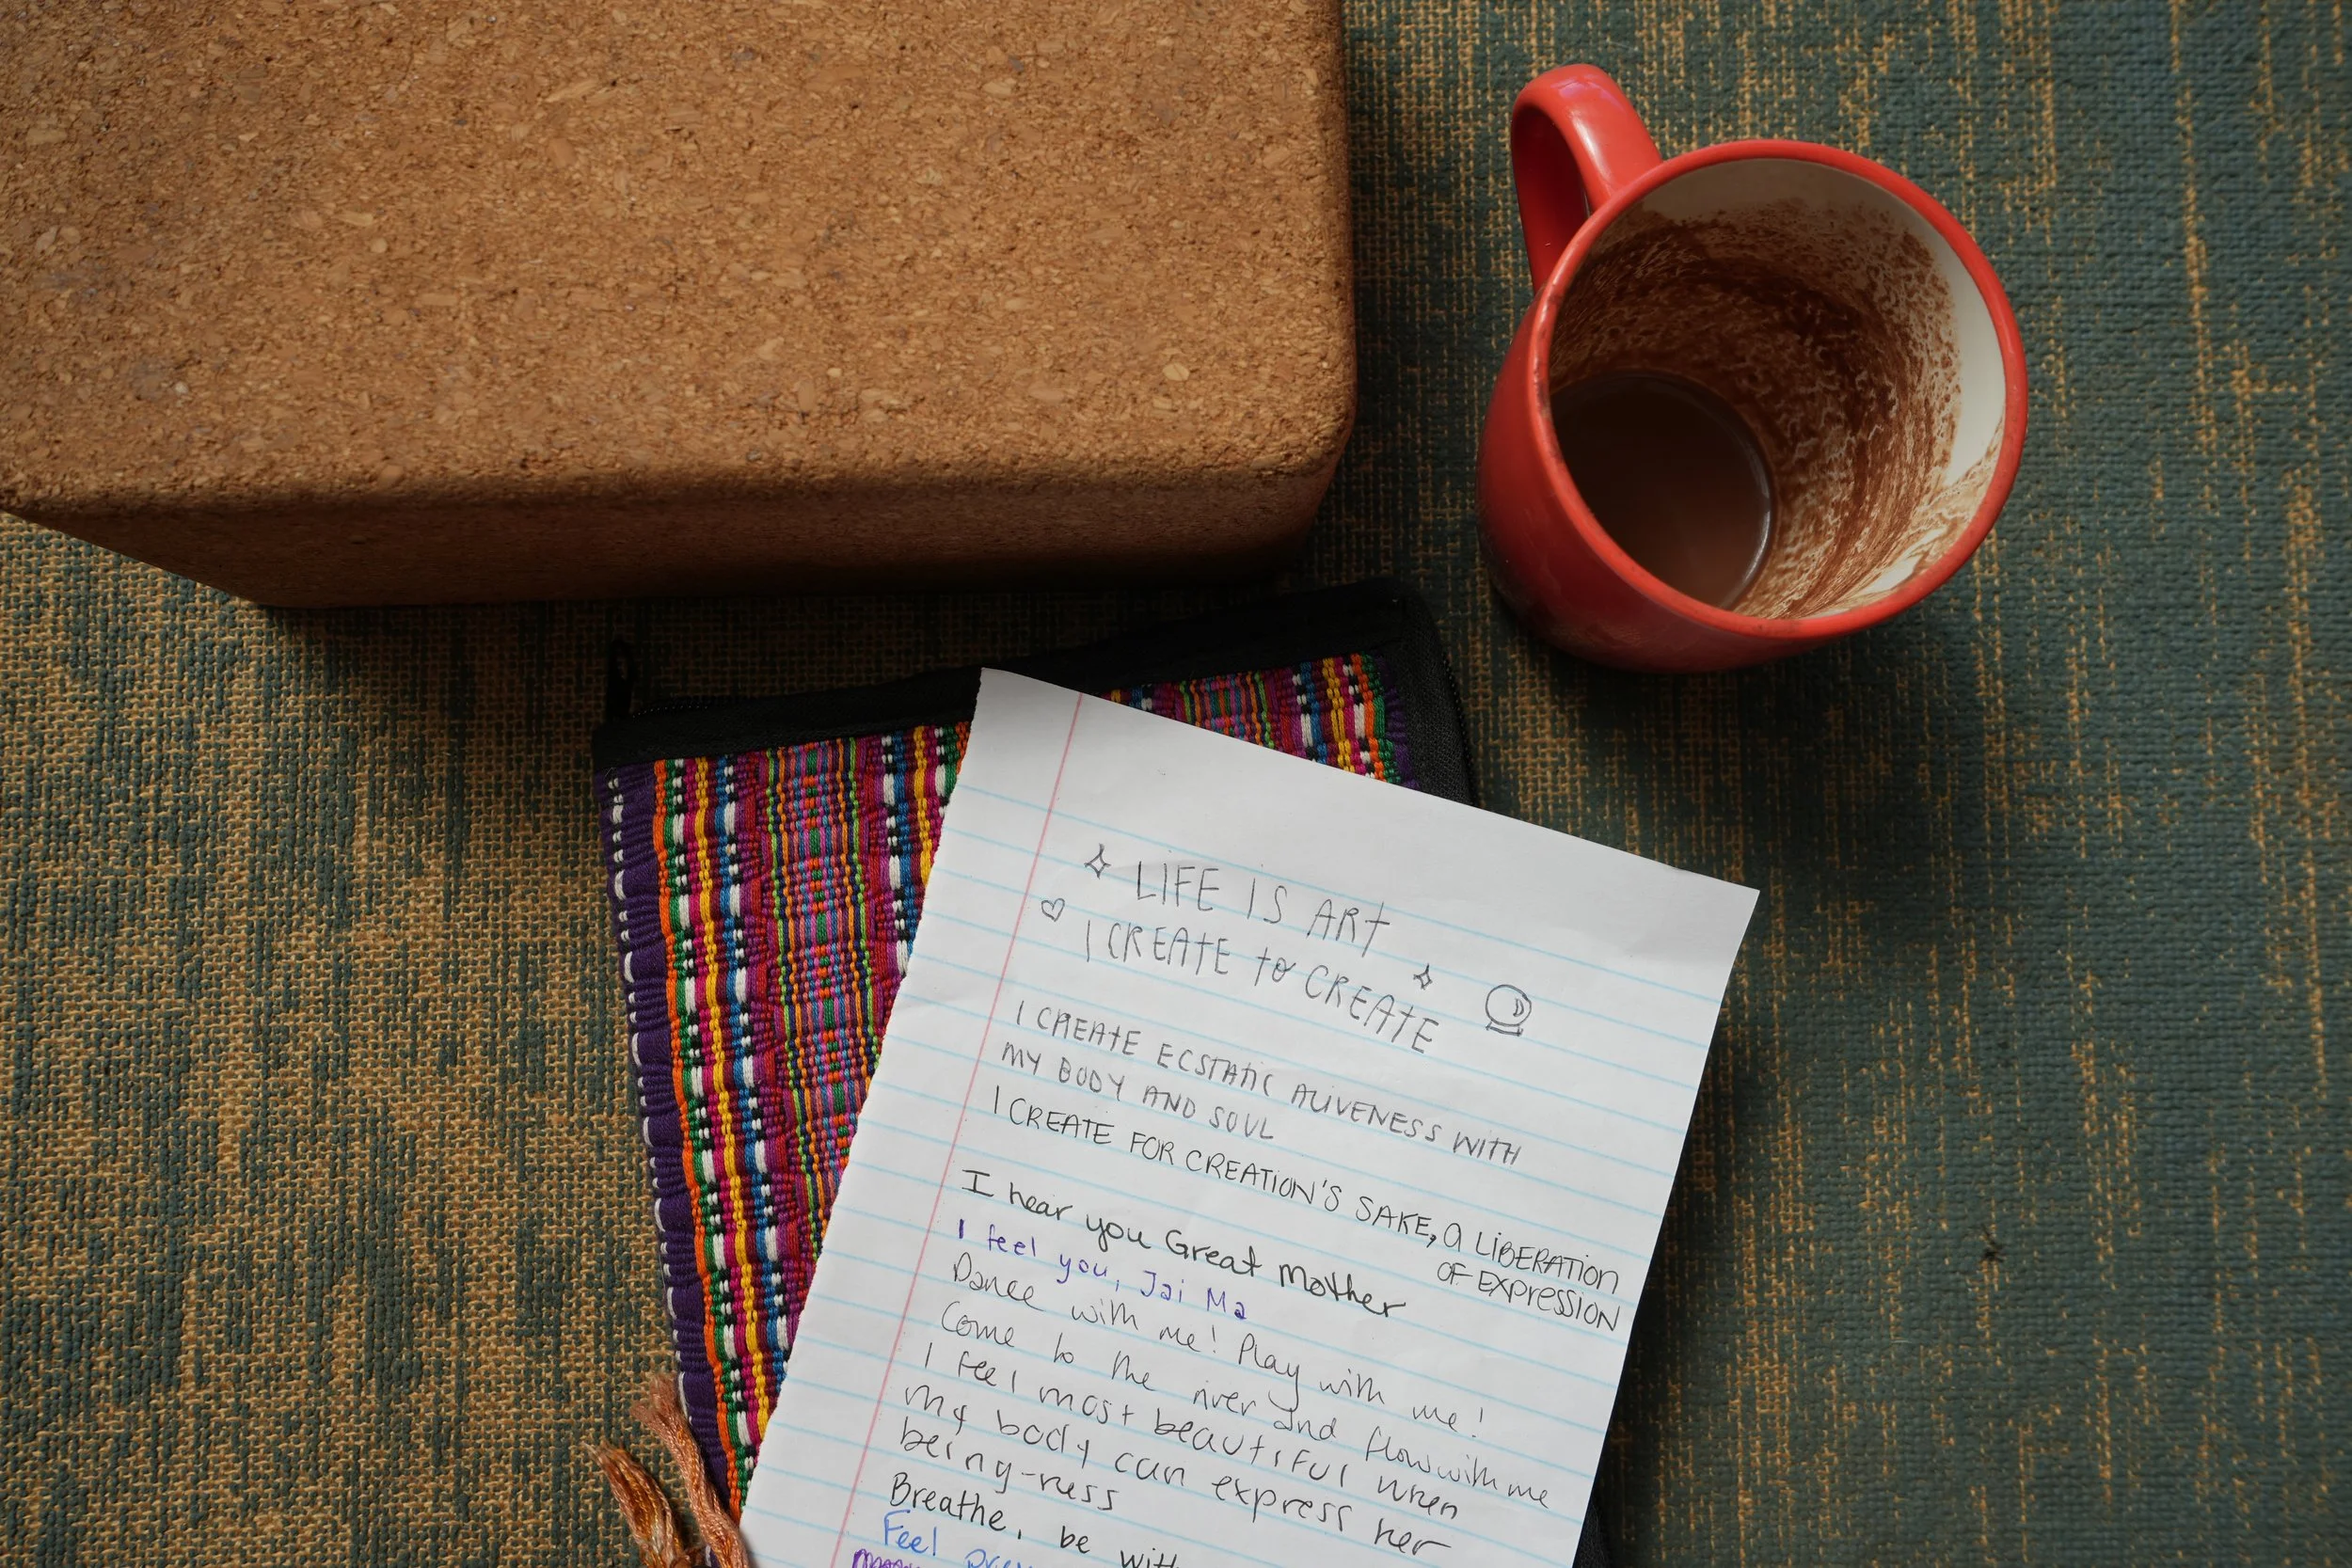 LIFE IS ART
I CREATE to CREATE
I CREATE ECSTATIC ALIVENESS WITH
MY BODY AND SOUL
I CREATE FOR CREATION'S SAKE, A LIBERATION
OF EXPRESSION
I hear you Great Mother
I feel you, Jai Ma
Dance with me! Play with me!
Come to the river and flow with me
I feel most beautiful when
my body can express her
being-ness
Breathe, be with
Feel